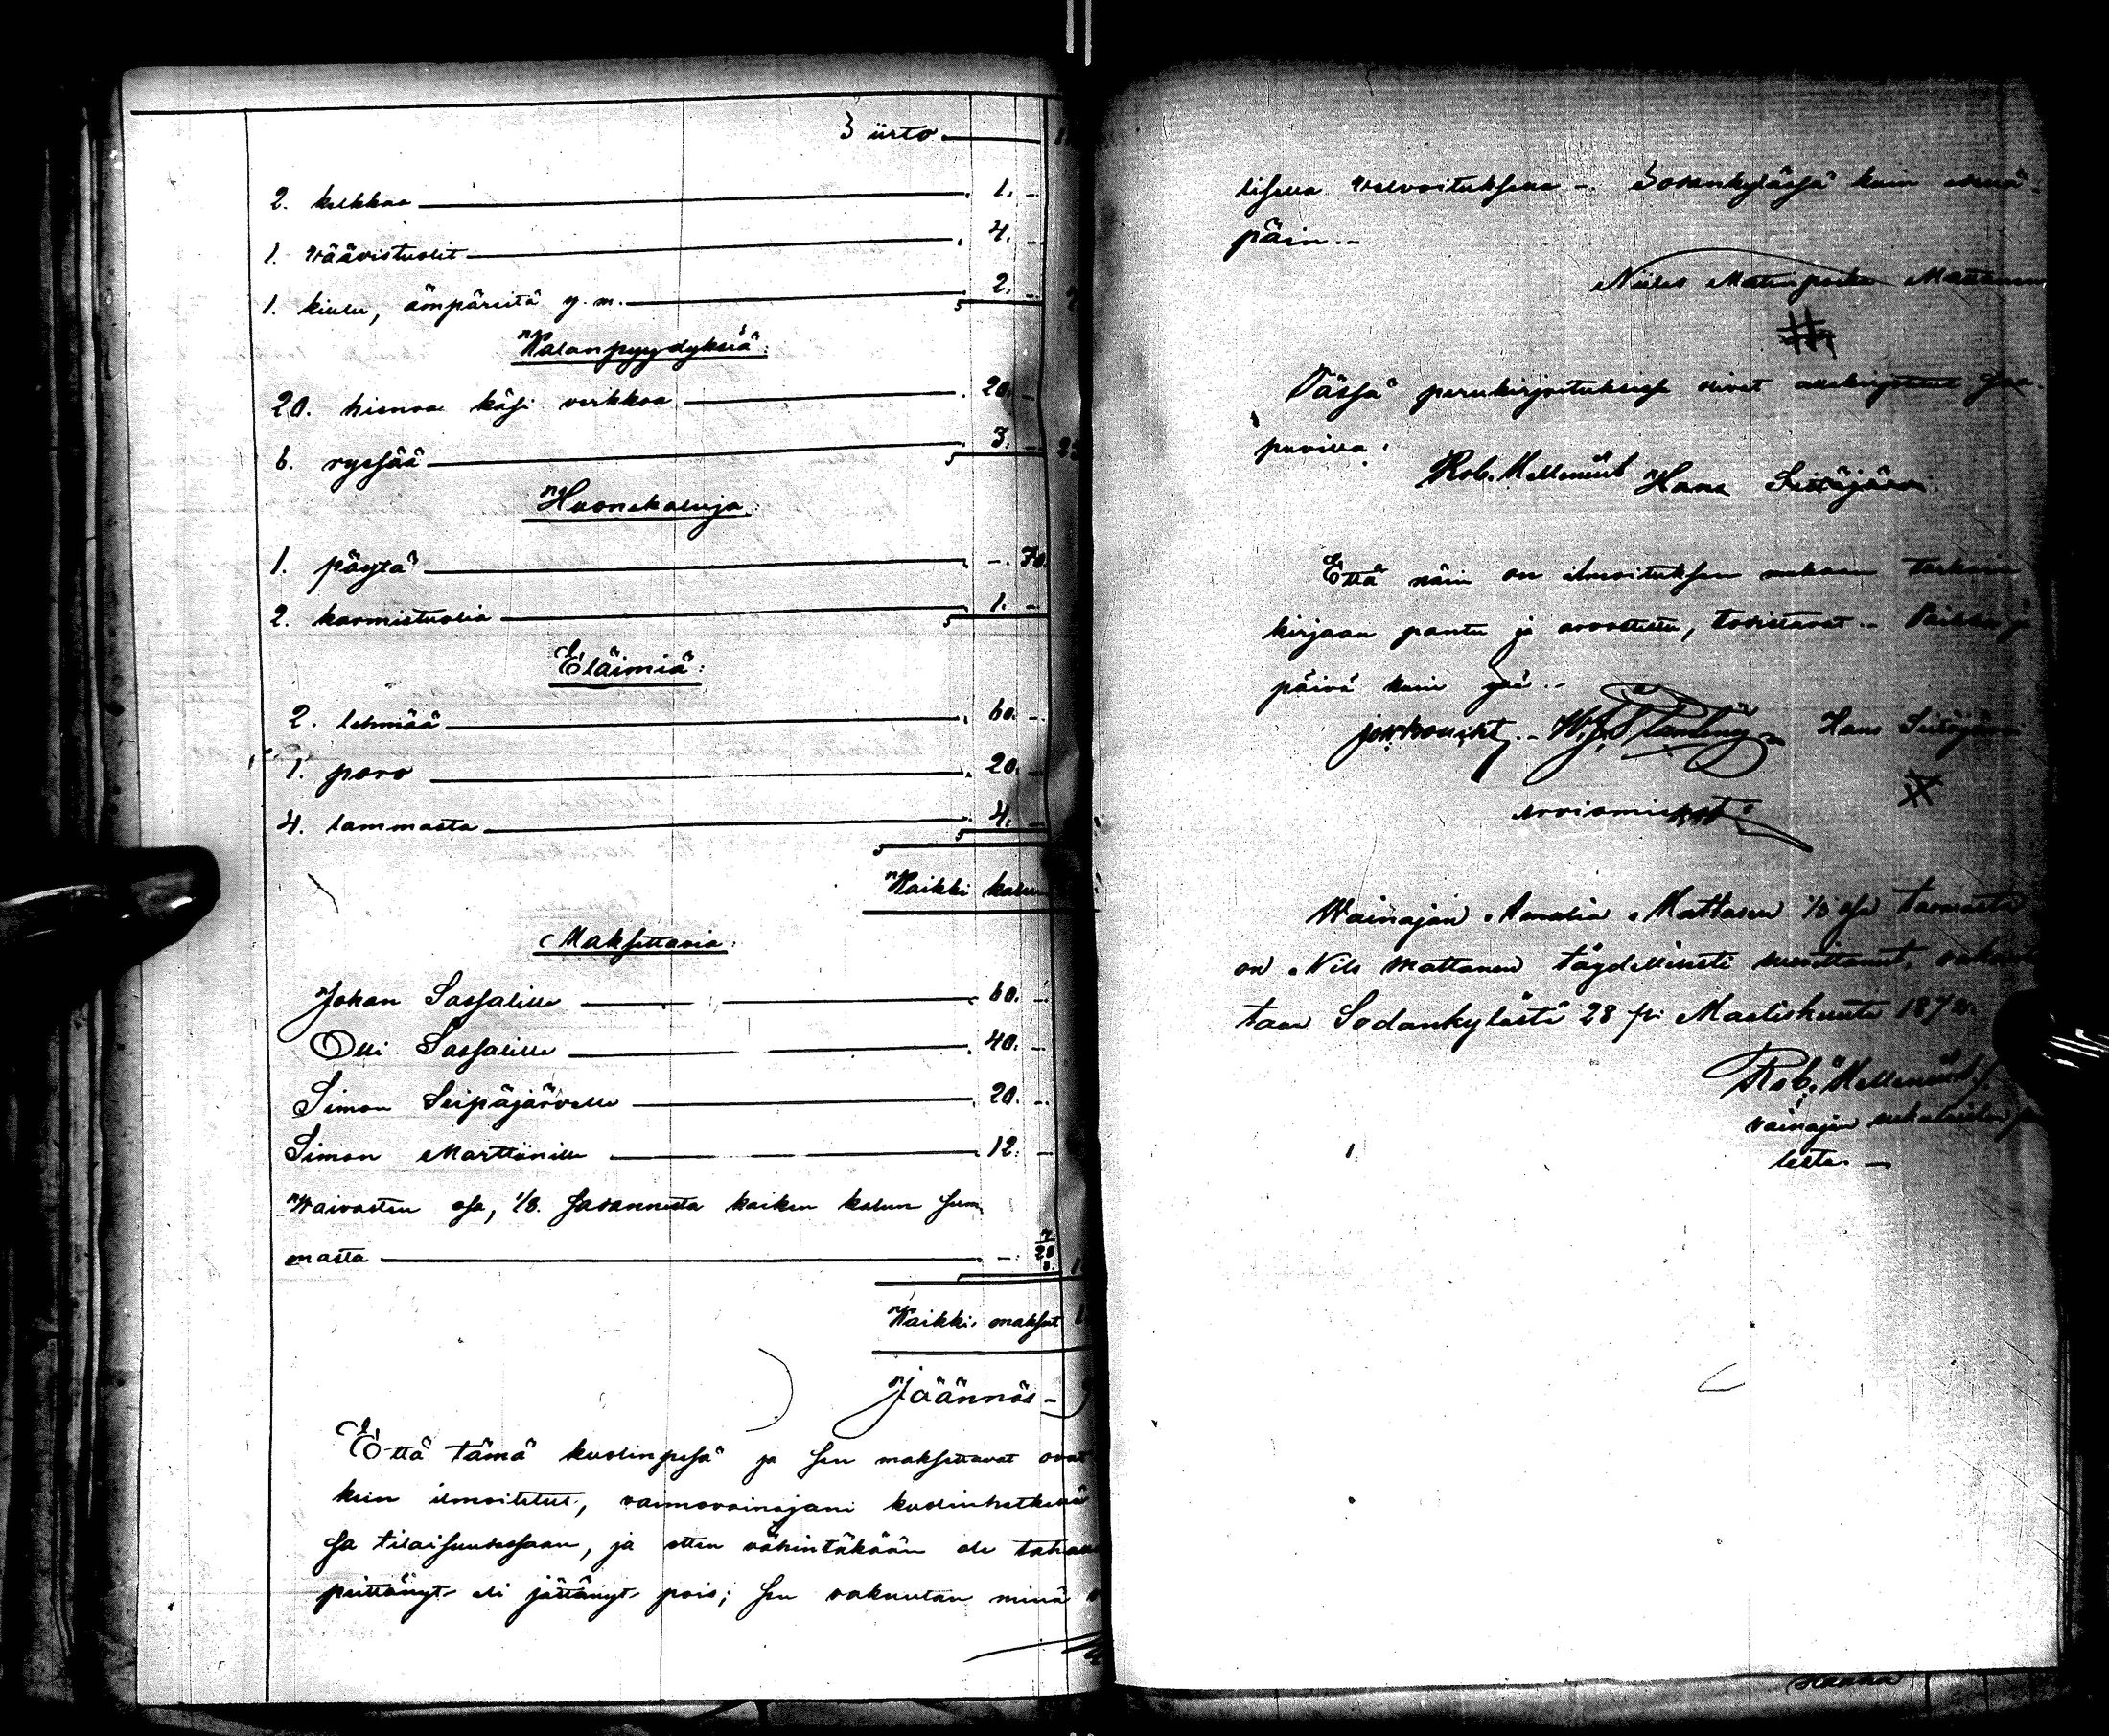 Siirto
2. kelkkaa 1. -
1. wäävistuolit 4. -
1. kiulu, ämpäreitä y. m. 2. -
Kalanpyydyksiä:
20. hienoa käsi verkkoa 20. -
6. ryssää 3. -
Huonekaluja
1. pöytä -. 70.
2. karmistuolia 1. -
Eläimiä:
2. lehmää 60. -
1. poro 20. -
4. lammasta 4. -
Kaikki kalun
Maksettavia:
Johan Sassalille 60. -
Olli Sassalille 40. -
Simon Seipäjärvelle 20. -
Simon Marttinille 12. -
Waivasten osa, 1/8. sadannesta kaiken kalun sum
masta
Kaikki maksut
Jäännös -
Että tämä kuolinpesä ja sen maksettavat ovat
kuin ilmoitetut, vaimovainajani kuolinhetkenä
sa tilaisuudessaan, ja etten vähintäkään ole tahal
peittänyt eli jättänyt pois; sen vakuutan minä
lisella velvoituksella -. Sodankylässä kuin edellä-
päin. -
Niiles Matinpoika Mattanen
Tässä perukirjoituksessa olivat allekirjoittaneet saa-
puvilla:
Rob. Hellemüt Hans Seitäjärvi.
Että näin on ilmoituksen mukaan tarkoin
kirjaan pantu ja arvosteltu, todistavat. - Paikka ja
päivä kuin yllä. -
Hans Seitäjärvi
arviomiehet
Wainajan Amalia Mattasen 1/8 osa tavarasta
on Nils Mattanen täydellisesti suorittanut, vakuute
taan Sodankylästä 28 p:i Maaliskuuta 187
Rob. Hellemüt
vainajan sukulaisten puo
lesta. -